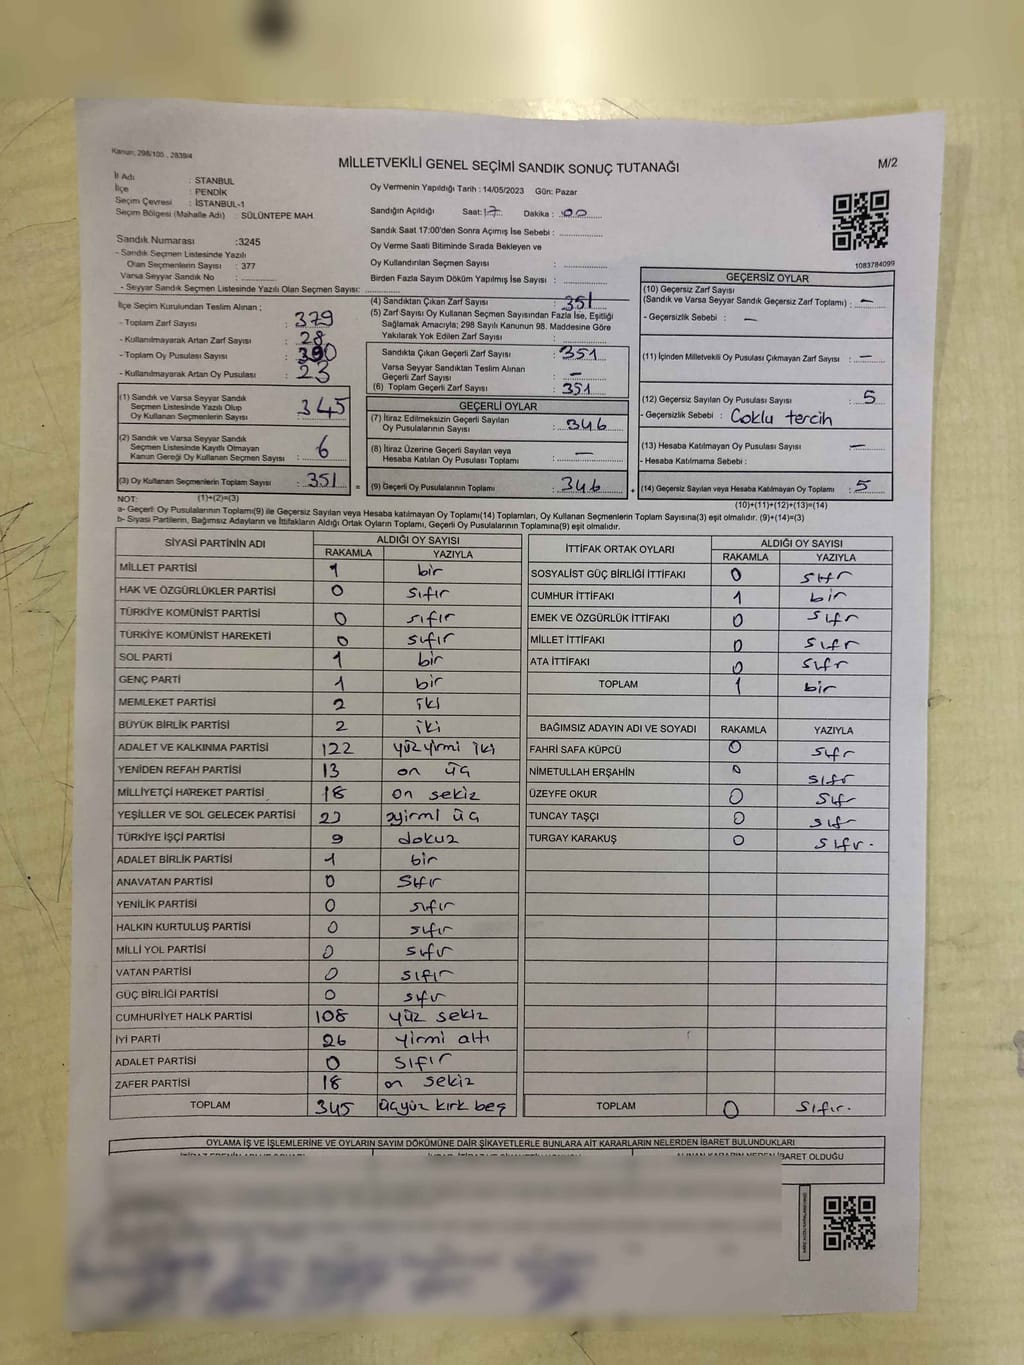 Kanun; 298/105 , 2839/4
MİLLETVEKİLİ GENEL SEÇİMİ SANDIK SONUÇ TUTANAĞI
M/2
İl Adı : STANBUL
İlçe : PENDİK
Seçim Çevresi : İSTANBUL-1
Seçim Bölgesi (Mahalle Adı) : SÜLÜNTEPE MAH.
Oy Vermenin Yapıldığı Tarih : 14/05/2023 Gün: Pazar
Sandığın Açıldığı Saat: 17 Dakika : 00
Sandık Saat 17:00'den Sonra Açımış İse Sebebi :
Oy Verme Saati Bitiminde Sırada Bekleyen ve
Oy Kullandırılan Seçmen Sayısı :
Birden Fazla Sayım Döküm Yapılmış İse Sayısı :
1083784099
Sandık Numarası :3245
- Sandık Seçmen Listesinde Yazılı
Olan Seçmenlerin Sayısı : 377
Varsa Seyyar Sandık No :
- Seyyar Sandık Seçmen Listesinde Yazılı Olan Seçmen Sayısı:
İlçe Seçim Kurulundan Teslim Alınan ;
- Toplam Zarf Sayısı : 379
- Kullanılmayarak Artan Zarf Sayısı : 28
- Toplam Oy Pusulası Sayısı :
- Kullanılmayarak Artan Oy Pusulası : 23
(1) Sandık ve Varsa Seyyar Sandık
Seçmen Listesinde Yazılı Olup
Oy Kullanan Seçmenlerin Sayısı : 345
(2) Sandık ve Varsa Seyyar Sandık
Seçmen Listesinde Kayıtlı Olmayan
Kanun Gereği Oy Kullanan Seçmen Sayısı : 6
(3) Oy Kullanan Seçmenlerin Toplam Sayısı : 351
(4) Sandıktan Çıkan Zarf Sayısı : 351
(5) Zarf Sayısı Oy Kullanan Seçmen Sayısından Fazla İse, Eşitliği
Sağlamak Amacıyla; 298 Sayılı Kanunun 98. Maddesine Göre
Yakılarak Yok Edilen Zarf Sayısı :
Sandıkta Çıkan Geçerli Zarf Sayısı : 351
Varsa Seyyar Sandıktan Teslim Alınan
Geçerli Zarf Sayısı : —
(6) Toplam Geçerli Zarf Sayısı : 351
GEÇERLİ OYLAR
(7) İtiraz Edilmeksizin Geçerli Sayılan
Oy Pusulalarının Sayısı : 346
(8) İtiraz Üzerine Geçerli Sayılan veya
Hesaba Katılan Oy Pusulası Toplamı : —
= (9) Geçerli Oy Pusulalarının Toplamı : 346
GEÇERSİZ OYLAR
(10) Geçersiz Zarf Sayısı
(Sandık ve Varsa Seyyar Sandık Geçersiz Zarf Toplamı) : —
- Geçersizlik Sebebi : —
(11) İçinden Milletvekili Oy Pusulası Çıkmayan Zarf Sayısı : —
(12) Geçersiz Sayılan Oy Pusulası Sayısı : 5
- Geçersizlik Sebebi : Çoklu tercih
(13) Hesaba Katılmayan Oy Pusulası Sayısı : —
- Hesaba Katılmama Sebebi :
+ (14) Geçersiz Sayılan veya Hesaba Katılmayan Oy Toplamı : 5
NOT: (1)+(2)=(3)
(10)+(11)+(12)+(13)=(14)
a- Geçerli Oy Pusulalarının Toplamı(9) ile Geçersiz Sayılan veya Hesaba katılmayan Oy Toplamı(14) Toplamları, Oy Kullanan Seçmenlerin Toplam Sayısına(3) eşit olmalıdır. (9)+(14)=(3)
b- Siyasi Partilerin, Bağımsız Adayların ve İttifakların Aldığı Ortak Oyların Toplamı, Geçerli Oy Pusulalarının Toplamına(9) eşit olmalıdır.
SİYASİ PARTİNİN ADI ALDIĞI OY SAYISI
RAKAMLA YAZIYLA
MİLLET PARTİSİ 1 bir
HAK VE ÖZGÜRLÜKLER PARTİSİ 0 sıfır
TÜRKİYE KOMÜNİST PARTİSİ 0 sıfır
TÜRKİYE KOMÜNİST HAREKETİ 0 sıfır
SOL PARTİ 1 bir
GENÇ PARTİ 1 bir
MEMLEKET PARTİSİ 2 iki
BÜYÜK BİRLİK PARTİSİ 2 iki
ADALET VE KALKINMA PARTİSİ 122 yüz yirmi iki
YENİDEN REFAH PARTİSİ 13 on üç
MİLLİYETÇİ HAREKET PARTİSİ 18 on sekiz
YEŞİLLER VE SOL GELECEK PARTİSİ 23 yirmi üç
TÜRKİYE İŞÇİ PARTİSİ 9 dokuz
ADALET BİRLİK PARTİSİ 1 bir
ANAVATAN PARTİSİ 0 sıfır
YENİLİK PARTİSİ 0 sıfır
HALKIN KURTULUŞ PARTİSİ 0 sıfır
MİLLİ YOL PARTİSİ 0 sıfır
VATAN PARTİSİ 0 sıfır
GÜÇ BİRLİĞİ PARTİSİ 0 sıfır
CUMHURİYET HALK PARTİSİ 108 yüz sekiz
İYİ PARTİ 26 yirmi altı
ADALET PARTİSİ 0 sıfır
ZAFER PARTİSİ 18 on sekiz
TOPLAM 345 üçyüz kırk beş
İTTİFAK ORTAK OYLARI ALDIĞI OY SAYISI
RAKAMLA YAZIYLA
SOSYALİST GÜÇ BİRLİĞİ İTTİFAKI 0 sıfır
CUMHUR İTTİFAKI 1 bir
EMEK VE ÖZGÜRLÜK İTTİFAKI 0 sıfır
MİLLET İTTİFAKI 0 sıfır
ATA İTTİFAKI 0 sıfır
TOPLAM 1 bir
BAĞIMSIZ ADAYIN ADI VE SOYADI RAKAMLA YAZIYLA
FAHRİ SAFA KÜPCÜ 0 sıfır
NİMETULLAH ERŞAHİN 0 sıfır
ÜZEYFE OKUR 0 sıfır
TUNCAY TAŞÇI 0 sıfır
TURGAY KARAKUŞ 0 sıfır.
TOPLAM 0 sıfır.
OYLAMA İŞ VE İŞLEMLERİNE VE OYLARIN SAYIM DÖKÜMÜNE DAİR ŞİKAYETLERLE BUNLARA AİT KARARLARIN NELERDEN İBARET BULUNDUKLARI
İBARET OLDUĞU